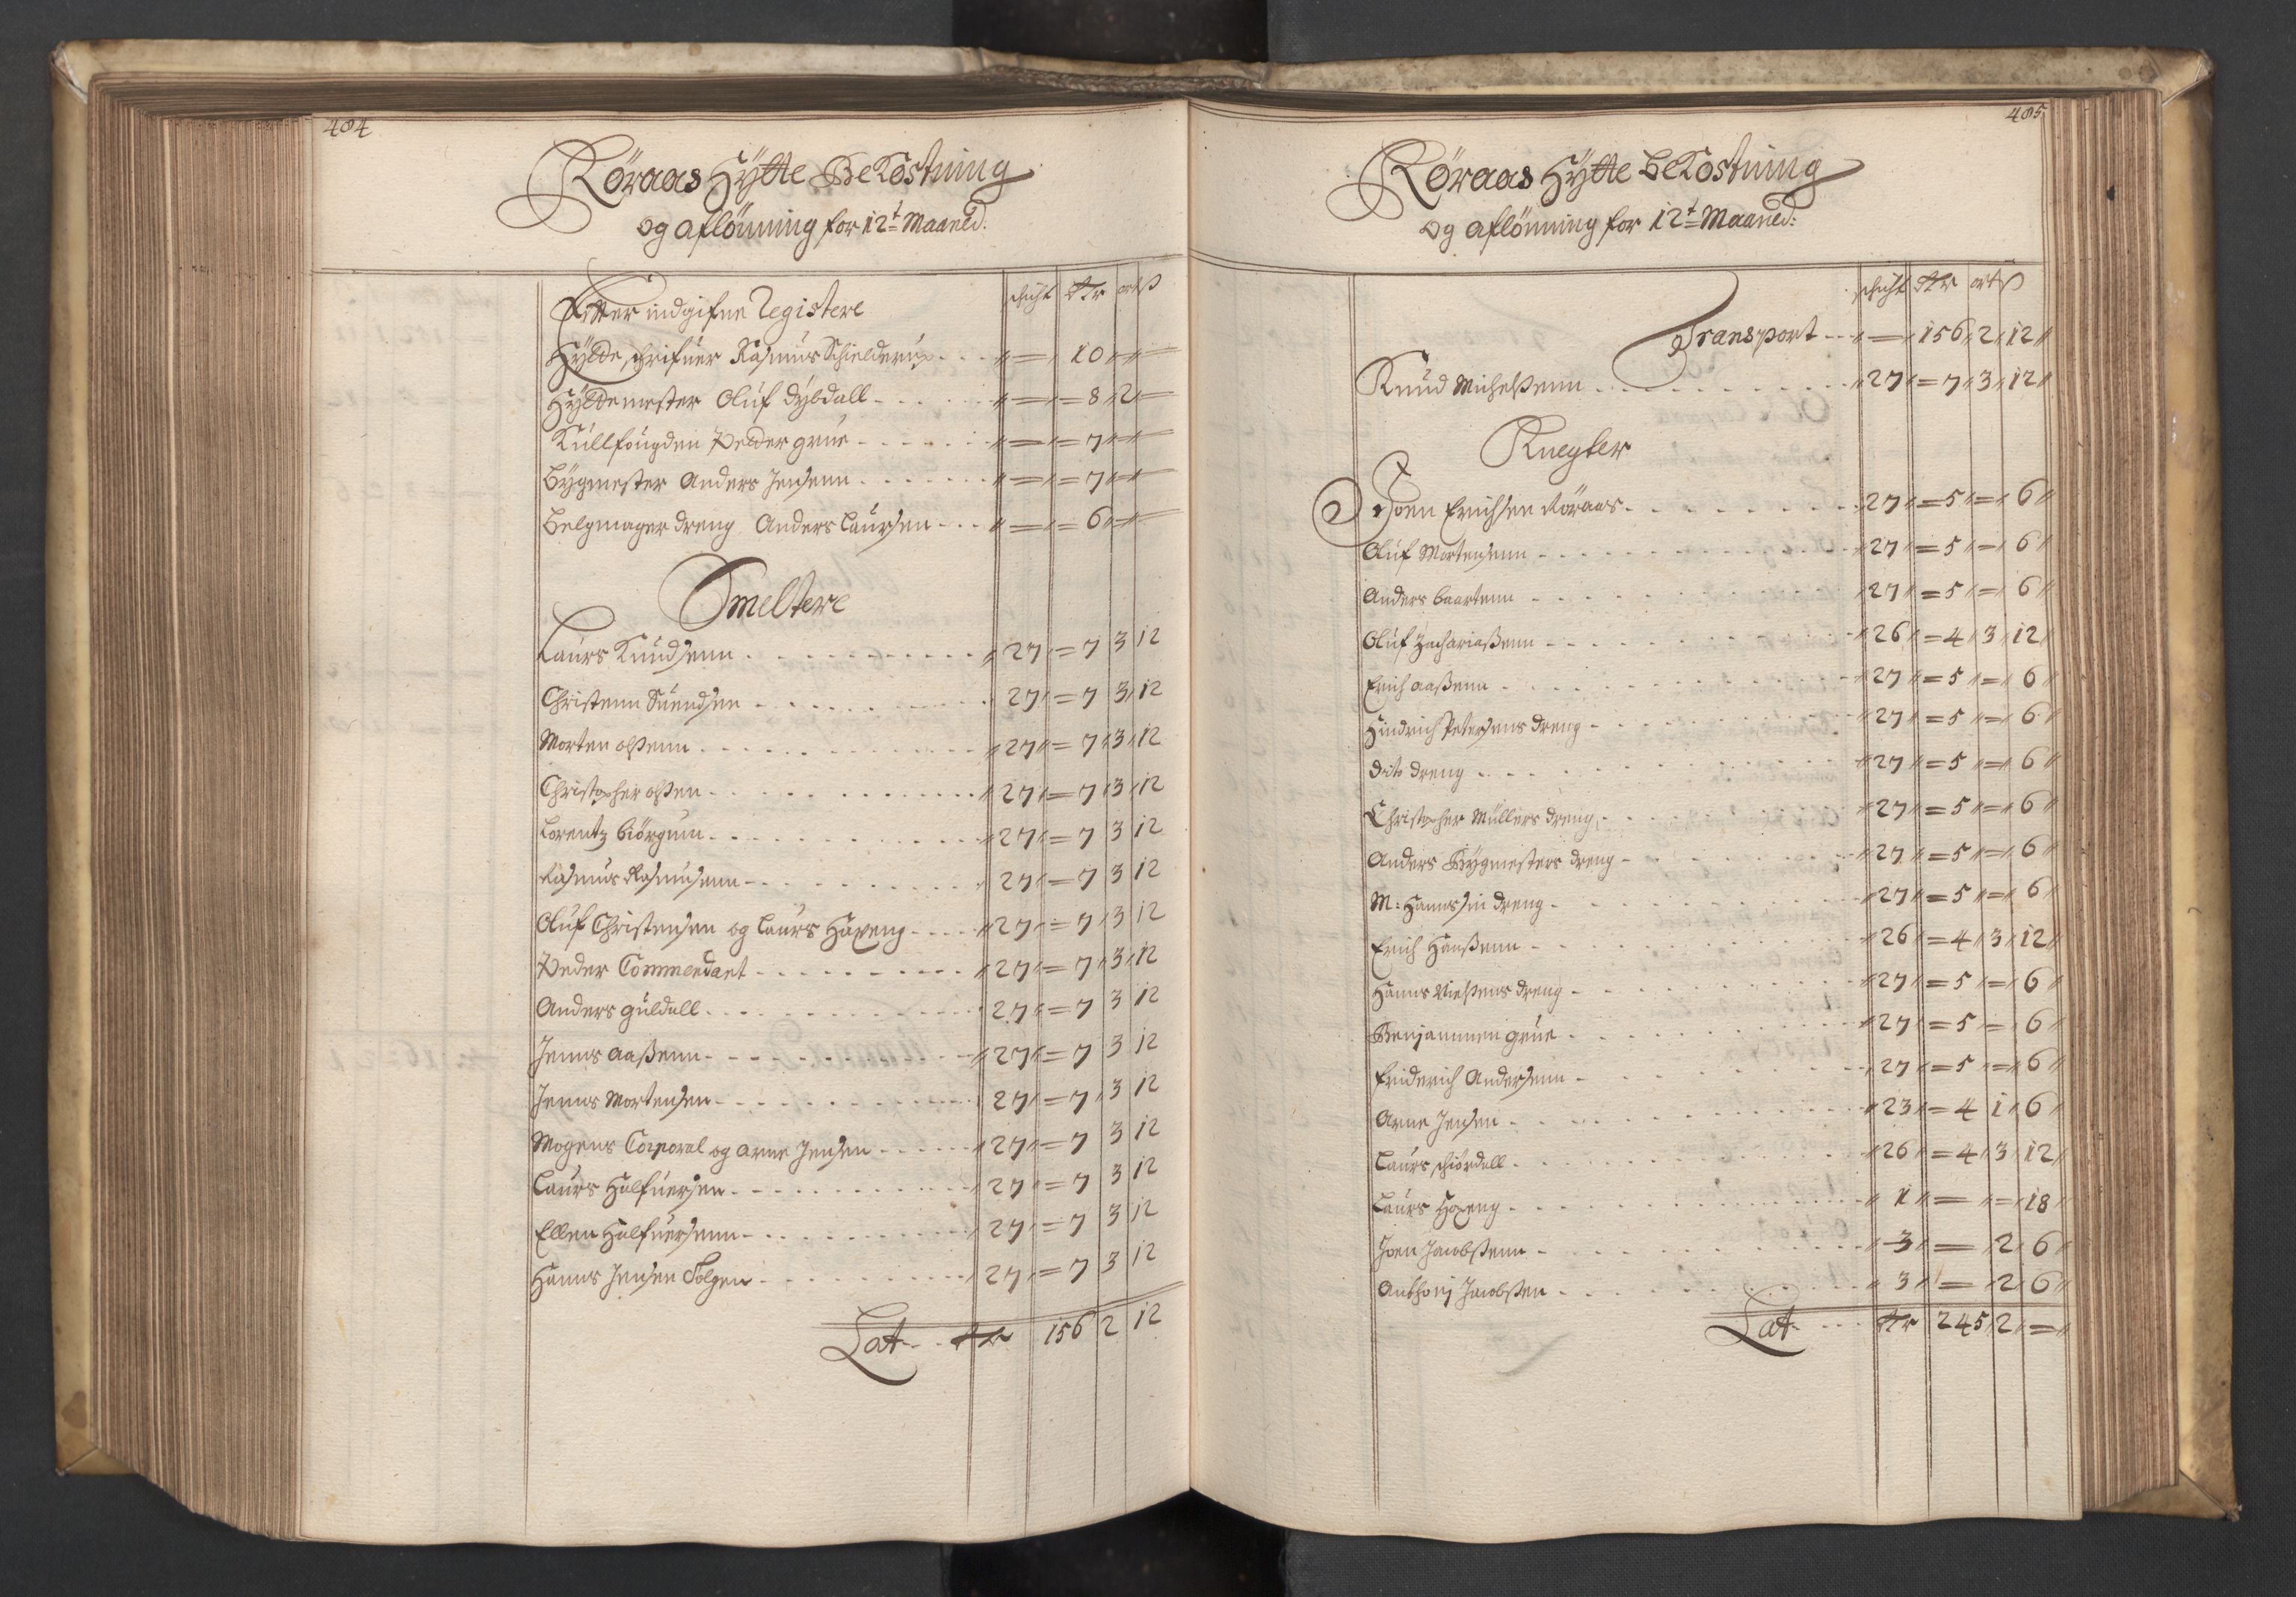 484
Röraas Hÿtte Bekostning
og aflönning for 12t Maaned:
Efter indgifne Registere schicht dlr ort ß
Hÿtteschrifuer Rasmus Schielderup - - - 〃 = 〃 10 〃 〃 =
Hÿttemester Oluf Dÿbdall - - - 〃 = 〃 = 8 〃 2 〃 =
Kullfougden Peder grue - - - 〃 = 〃 = 7 〃 〃 =
Bÿgmester Anders Jensenn - - - 〃 = 〃 = 7 〃 〃 =
Belgmager dreng Anders Laursen - - - 〃 = 〃 = 6 〃 〃 =
Smeltere
Laurs Knudsenn - - - 〃 27 〃 = 7 3 12
Christenn Suendsen - - - 27 〃 = 7 3 〃 12
Morten olßenn - - - 〃 27 〃 = 7 〃 3 〃 12
Christopher olßen - - - 〃 27 〃 = 7 〃 3 〃 12
Lorentz biörgum - - - 〃 27 〃 = 7 3 12
Rasmus Rasmusenn - - - 27 〃 = 7 3 12
Oluf Christensen og Laurs Haxeng - - - 〃 27 〃 = 7 〃 3 12
Peder Commendant - - - 〃 27 〃 = 7 〃 3 〃 12
Anders guldall - - - 27 〃 = 7 3 12
Jenns aaßenn - - - 〃 27 〃 = 7 3 12
Jenns Mortensen - - - 27 〃 = 7 〃 3 12
Mogens Corporal og Arne Jensen - - - 〃 27 〃 = 7 3 12
Laurs Halfuersen - - - 〃 27 〃 = 7 3 12
Ellen Halfuersenn - - - 27 〃 = 7 3 12
Hanns Jensen Solgen - - - 〃 27 〃 = 7 3 12
Lat - - dlr 156 2 12
485
Röraas Hÿtte Bekostning
og aflönning for 12t Maaned:
schicht dlr ort ß
Transport - - 〃 = 〃 156 〃 2 〃 12 〃
Knud Michelßenn - - - 〃 27 〃 = 7 〃 3 〃 12 〃
Knegter
Joen Erichsen Röraas - - - 27 〃 = 5 〃 = 〃 6 〃
Oluf Mortensenn - - - 〃 27 〃 = 5 〃 = 〃 6 〃
Anders baartenn - - - 〃 27 〃 = 5 〃 = 〃 6 〃
Oluf Zachariaßenn - - - 〃 26 〃 = 4 〃 3 〃 12 〃
Erich aaßenn - - - 〃 27 〃 = 5 〃 = 〃 6 〃
Hindrich Petersens dreng - - - 〃 27 〃 = 5 〃 = 〃 6 〃
dito dreng - - - 〃 27 〃 = 5 〃 = 〃 6 〃
Christopher Müllers dreng - - - 〃 27 〃 = 5 〃 = 〃 6 〃
Anders Bÿgmesters dreng - - - 〃 27 〃 = 5 〃 = 〃 6 〃
M: Hanns sin dreng - - - 〃 27 〃 = 5 〃 = 〃 6 〃
Erich Hanßenn - - - 〃 26 〃 = 4 〃 3 〃 12 〃
Hanns Nielßens dreng - - - 〃 27 〃 = 5 〃 = 〃 6 〃
Benjammen grue - - - 〃 27 〃 = 5 〃 = 〃 6 〃
Friderich Andersenn - - - 〃 27 〃 = 5 〃 = 〃 6 〃
Arne Jensen - - - 〃 23 〃 = 4 1 〃 6 〃
Laurs schiördall - - - 〃 26 〃 = 4 〃 3 〃 12 〃
Laurs Haxeng - - - 〃 1 〃 = 〃 = 〃 18 〃
Joen Jacobßenn - - - 〃 3 〃 = 〃 2 〃 6 〃
Anthonj Jacobßen - - - 〃 3 〃 = 〃 2 〃 6 〃
Lat - - - dlr 245 〃 2 〃 = 〃